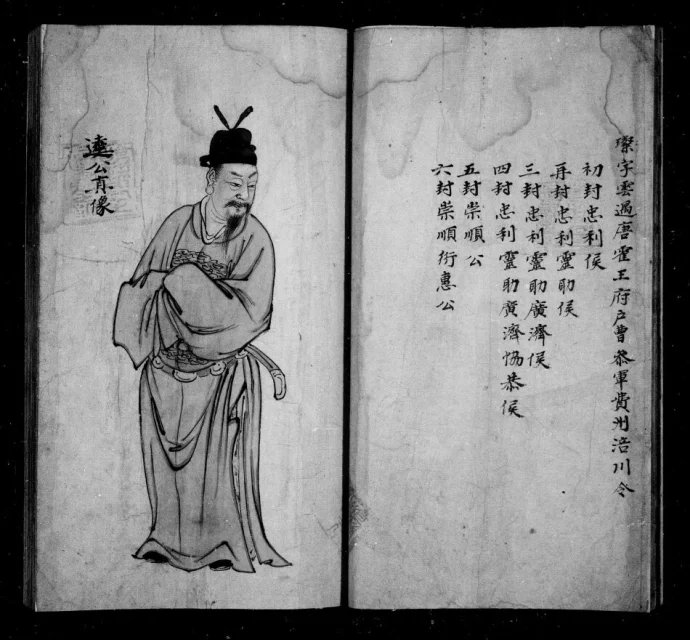 璨字雲過唐霍王府戶曹叅軍費州涪川令
初封忠利侯
再封忠利靈助侯
三封忠利靈助廣濟侯
四封忠利靈助廣濟協恭侯
五封崇順公
六封崇順衍惠公
達公肖像